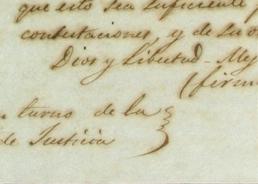 que esto sea suficiente
contestaciones, y de la
Dios y Libertad. Mej
(firm
turno de la
de Justicia